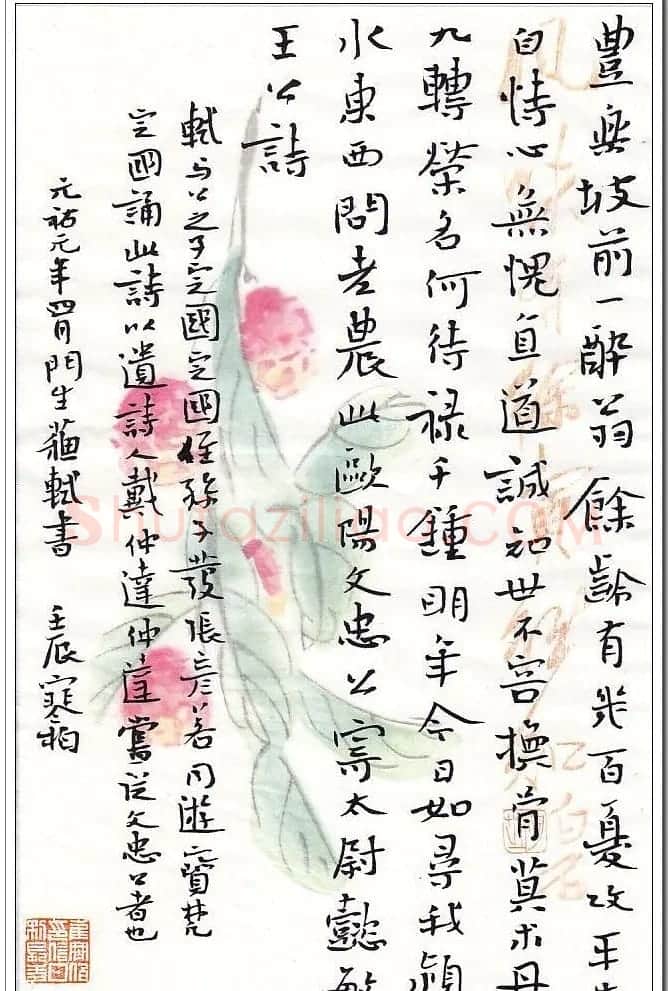 豐樂坡前一醉翁餘齡有幾百憂攻平生
自恃心無愧直道誠知世不容換骨莫求丹
九轉榮名何待祿千鍾明年今日如尋我潁
水東西問老農此歐陽文忠公寄太尉懿敏
王公詩
軾与公之子定國定國姪孫子發張彥若同遊寶梵
定國誦此詩以遺詩人戴仲達仲達嘗從文忠公者也
元祐元年四月門生蘇軾書 壬辰寒柏
Shufaziliao.COM